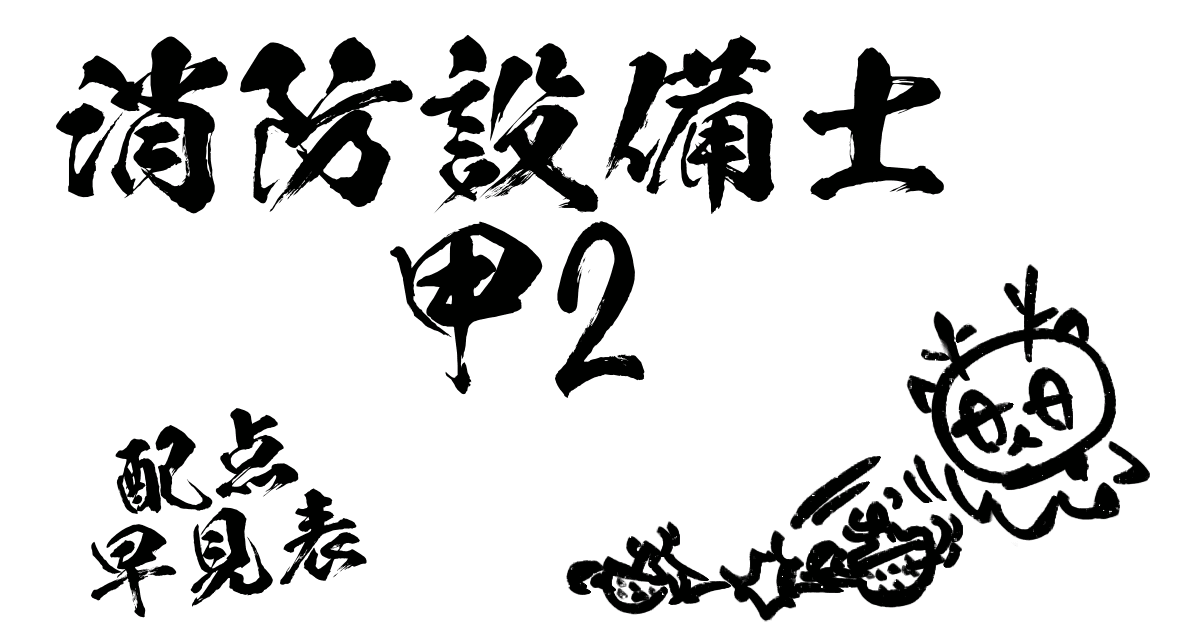 消防設備士
甲2
配点
早見表